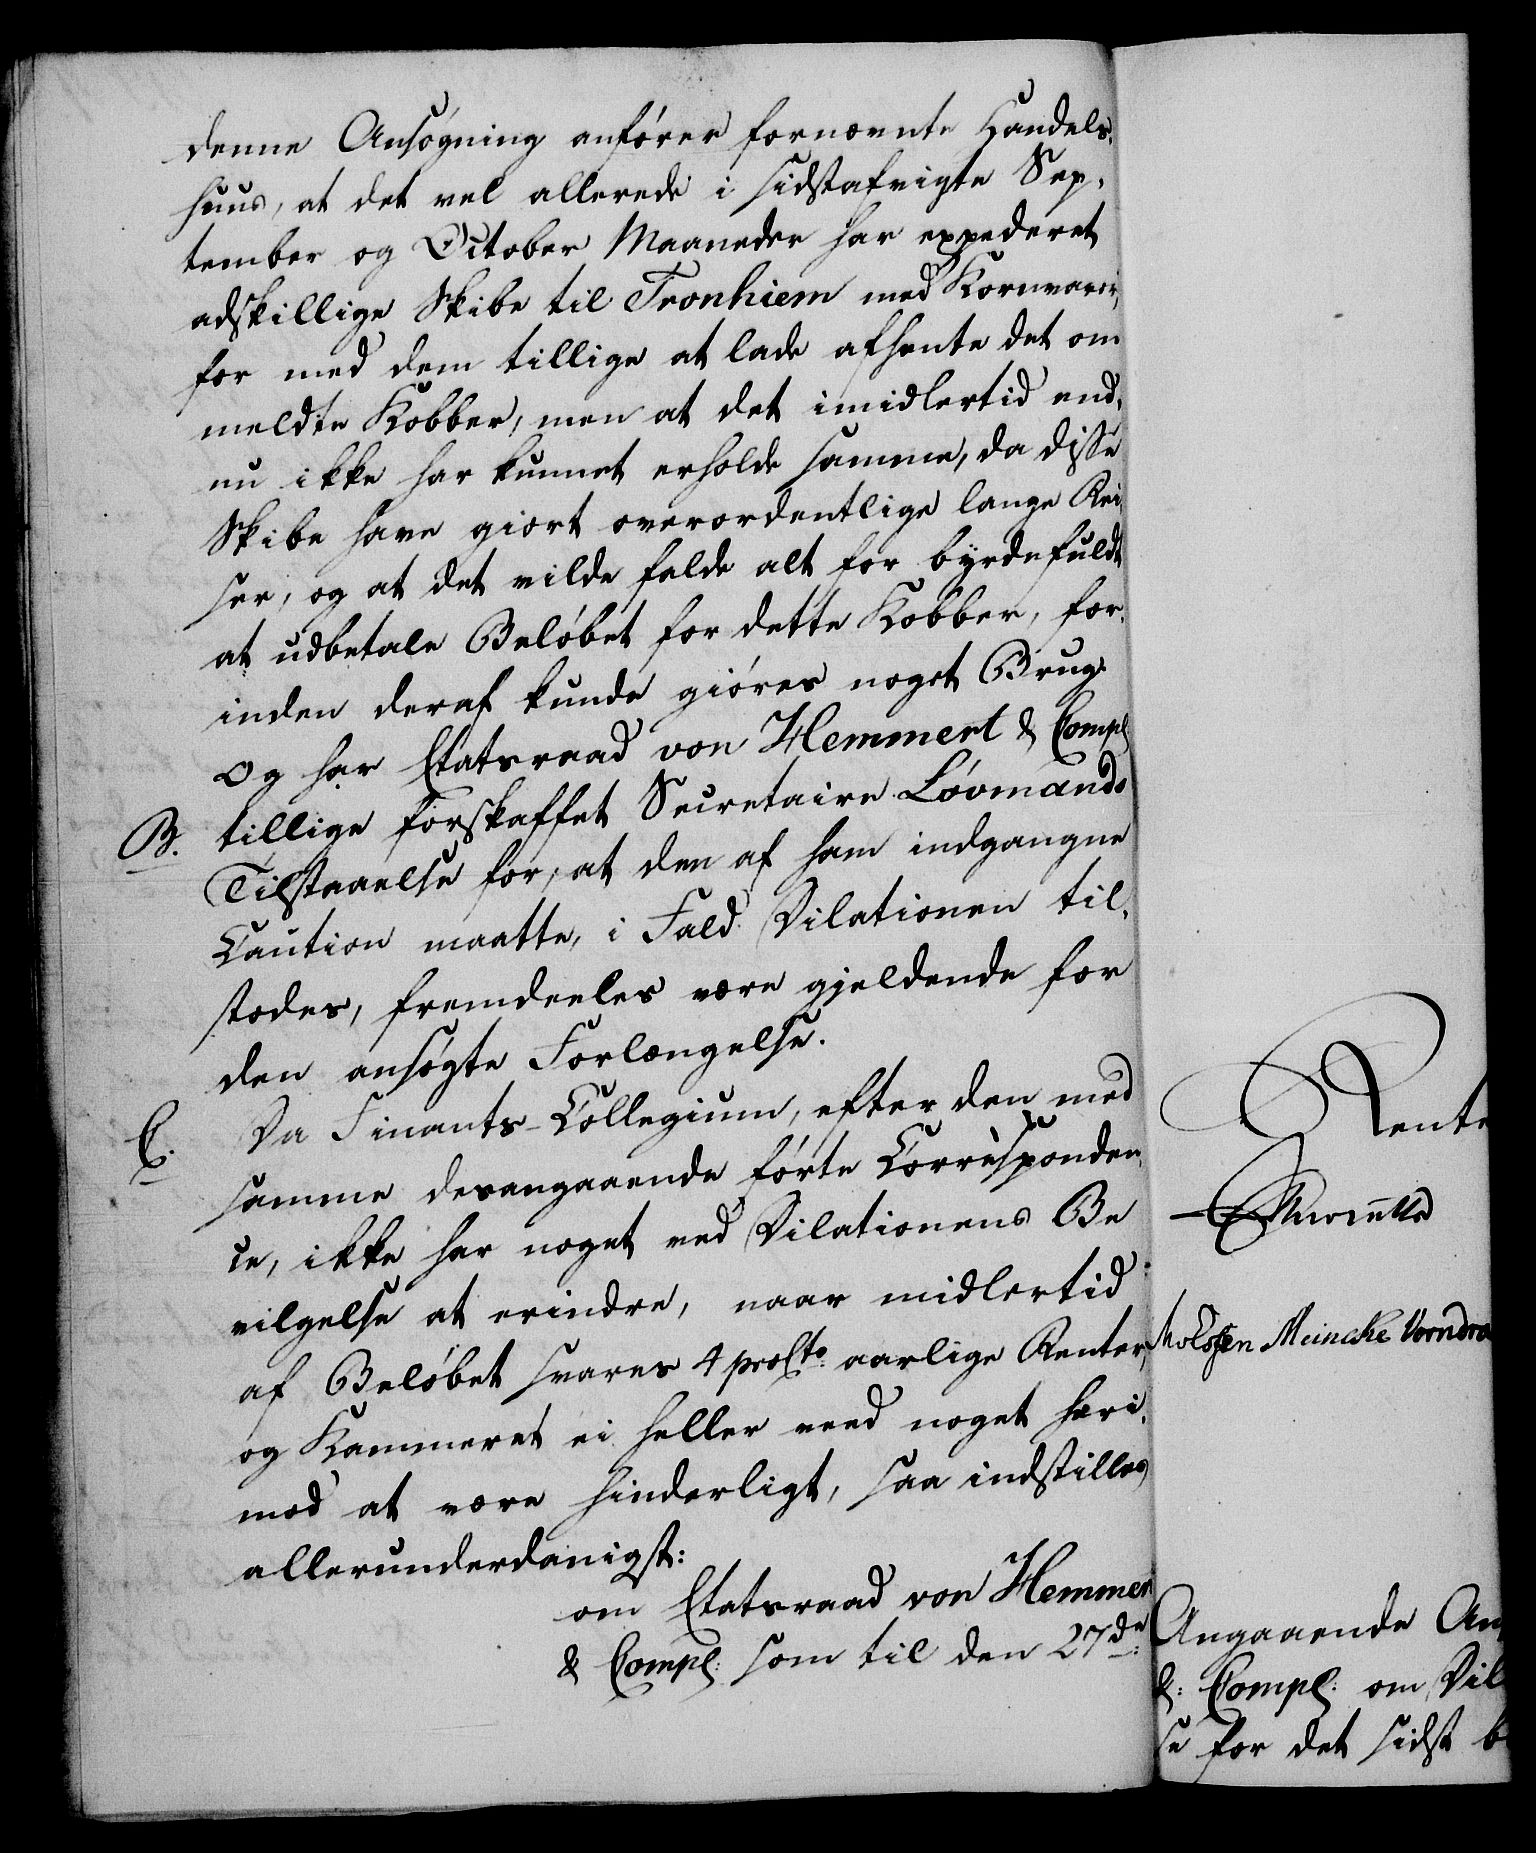 denne Ansøgning anfører fornævnte Handels-
huus, at det vel allerede i sidstafvigte Sep-
tember og October Maaneder har expederet
adskillige Skibe til Tronhiem med Kornvarer,
for med dem tillige at lade afhente det om
meldte Kobber, men at det imidlertid end-
nu ikke har kunnet erholde samme, da disse
Skibe have giort overordentlige lange Rei
ser, og at det vilde falde alt for byrdefuldt
at udbetale Beløbet for dette Kobber, for-
inden deraf kunde giøres noget Brug.
Og har Etatsraad von Hemmert & Comp:
B. tillige forskaffet Secretaire Løvmands
Tilstaaelse for, at den af ham indgangne
Caution maatte, i Fald Dilationen til-
stodes, fremdeeles være gjeldende for
den ansøgte Forlængelse.
C. Da Finants-Collegium, efter den med
samme desangaaende førte Corresponden-
ce, ikke har noget ved Dilationens Be
vilgelse at erindre, naar midlertid
af Beløbet svares 4 proCto: aarlige Renter,
og Kammeret ei heller veed noget heri-
mod at være hinderligt, saa indstilles
allerunderdanigst:
om Etatsraad von Hemmer
& Comp: som til den 27de:
Rente
Meincke
Angaaende An
&: Comp: om Dil
se for det sidst b